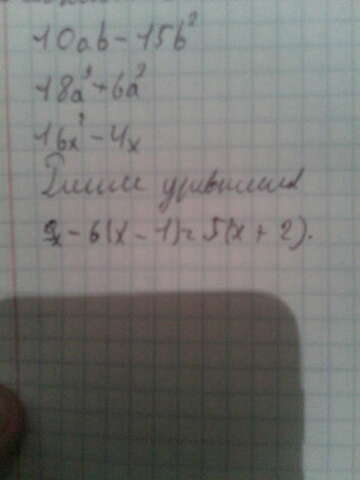 10ab - 15b²
18a³ + 6a²
16x² - 4x
уравнения
9x - 6(x - 1) = 5(x + 2).